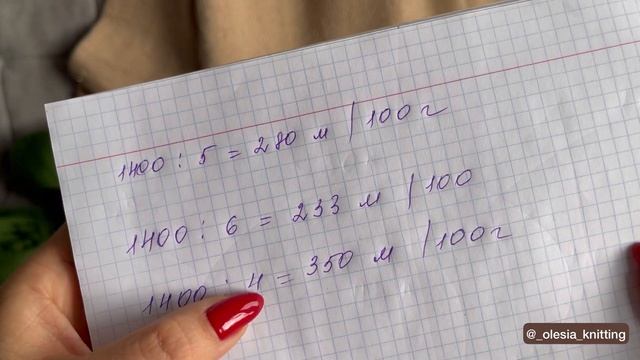 1400 : 5 = 280 м / 100 г
1400 : 6 = 233 м / 100
1400 : 4 = 350 м / 100 г
@_olesia_knitting